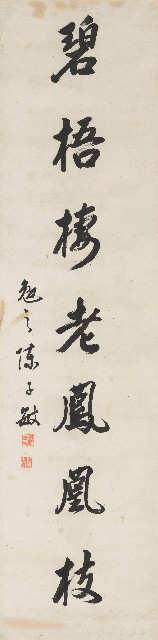 碧梧棲老鳳凰枝
勉之陳子敏